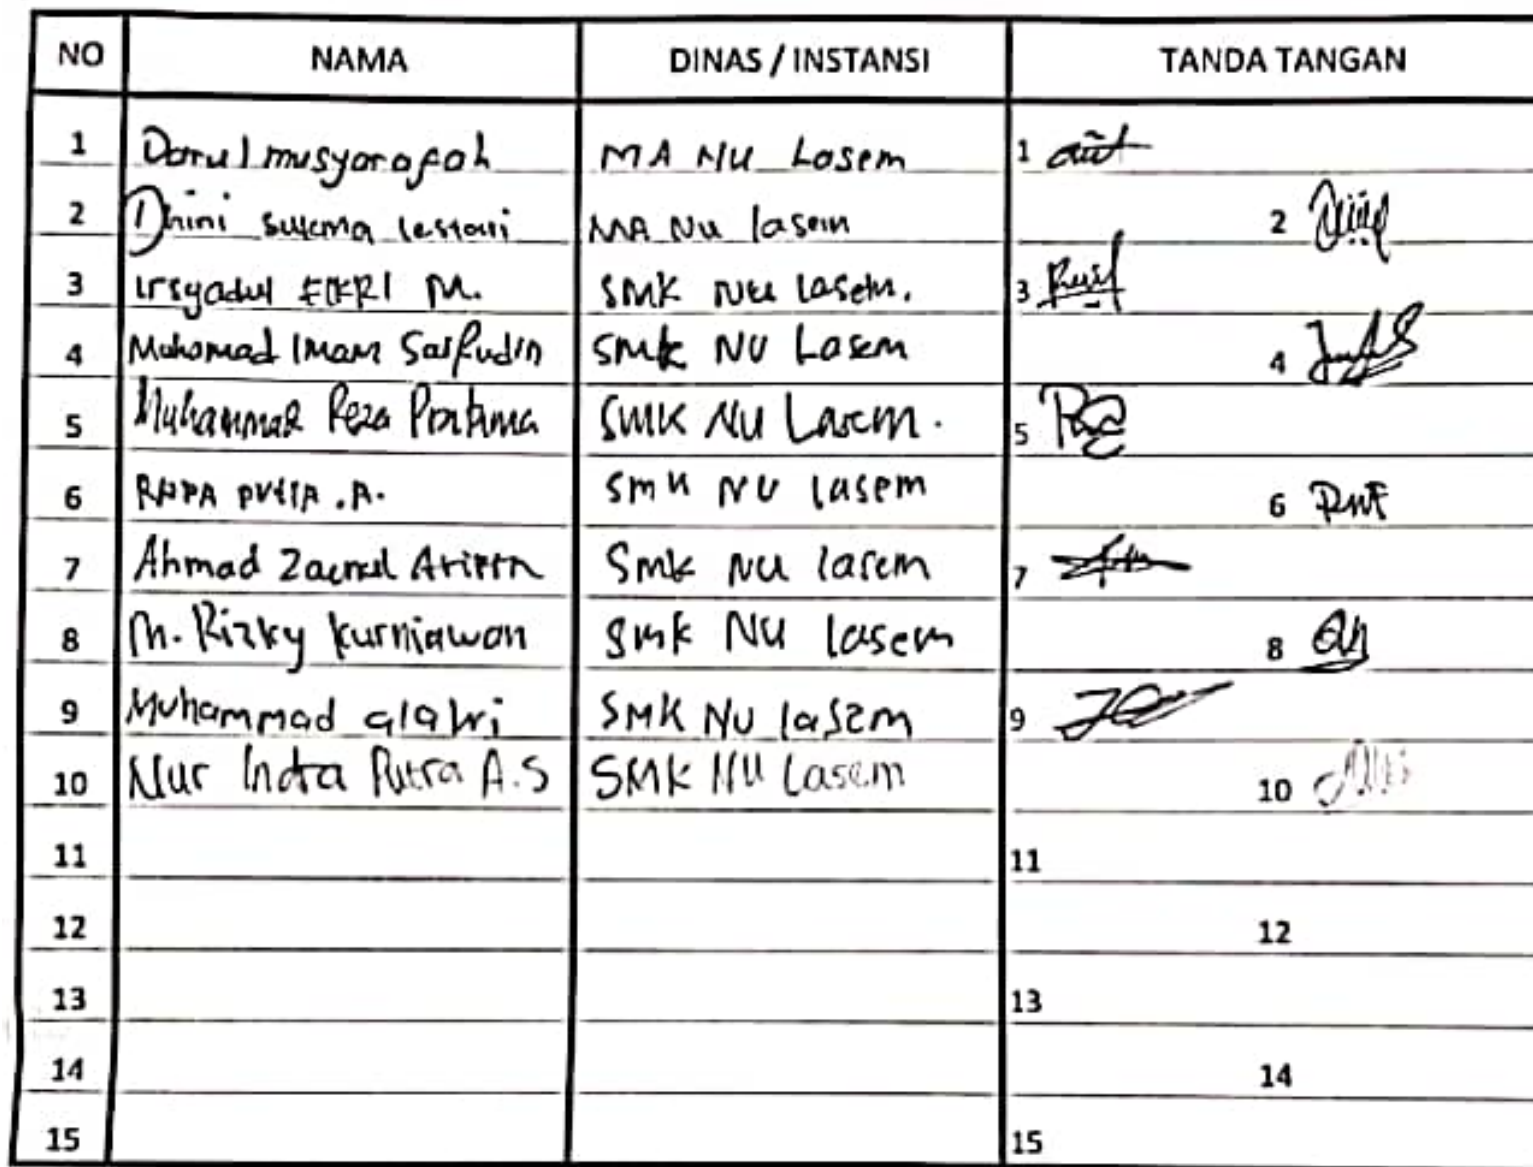 NO NAMA DINAS / INSTANSI TANDA TANGAN
1 Darul musyarofah MA NU Lasem 1
2 Dhini sukma lestari MA NU lasem 2
3 Irsyadul FIKRI M. SMK NU lasem. 3
4 Mohamad Imam Saifudin SMK NU Lasem 4
5 Muhammad Reza Pratama SMK NU Lasem. 5
6 PUTRA .A. smk NU lasem 6
7 Ahmad Zaenul Arifin Smk NU lasem 7
8 M. Rizky kurniawan smk NU lasem 8
9 Muhammad alawi SMK NU lasem 9
10 Nur Indra Putra A.S SMK NU Lasem 10
11 11
12 12
13 13
14 14
15 15